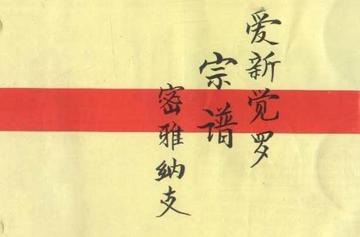 爱新觉罗
宗谱
密雅纳支